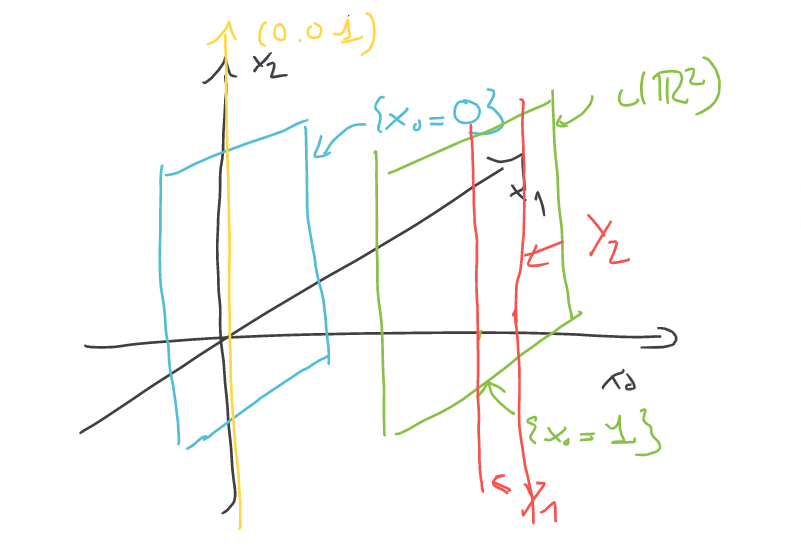 (0.01)
x₂
{x₀=0}
ι(ℝ²)
x₁
Y₂
x₀
{x₀=1}
Y₁